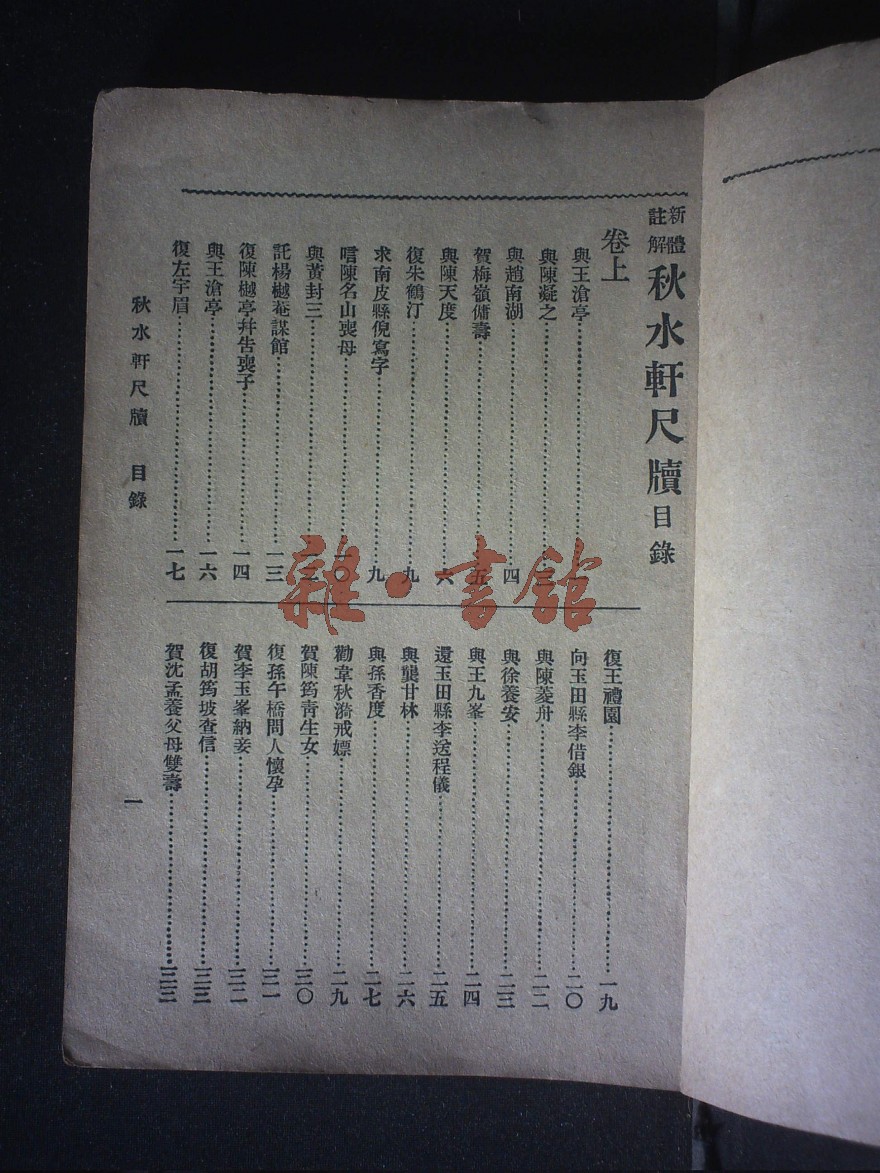 新體註解秋水軒尺牘目錄
卷上
與王滄亭
與陳凝之
與趙南湖……四
賀梅嶺傭壽……五
與陳天度……六
復朱鶴汀……九
求南皮縣倪寫字……九
唁陳名山喪母……一〇
與黃封三
託楊樾菴謀館……一三
復陳樾亭幷告喪子……一四
與王滄亭……一六
復左宇眉……一七
復王禮園……一九
向玉田縣李借銀……二〇
與陳菱舟……二二
與徐養安……二三
與王九峯……二四
還玉田縣李送程儀……二五
與龔甘林……二六
與孫香度……二七
勸韋秋漪戒嫖……二九
賀陳筠青生女……三〇
復孫午橋問人懷孕……三一
賀李玉峯納妾……三二
復胡筠坡查信……三三
賀沈孟養父母雙壽……三三
秋水軒尺牘 目錄
一
雜·書館